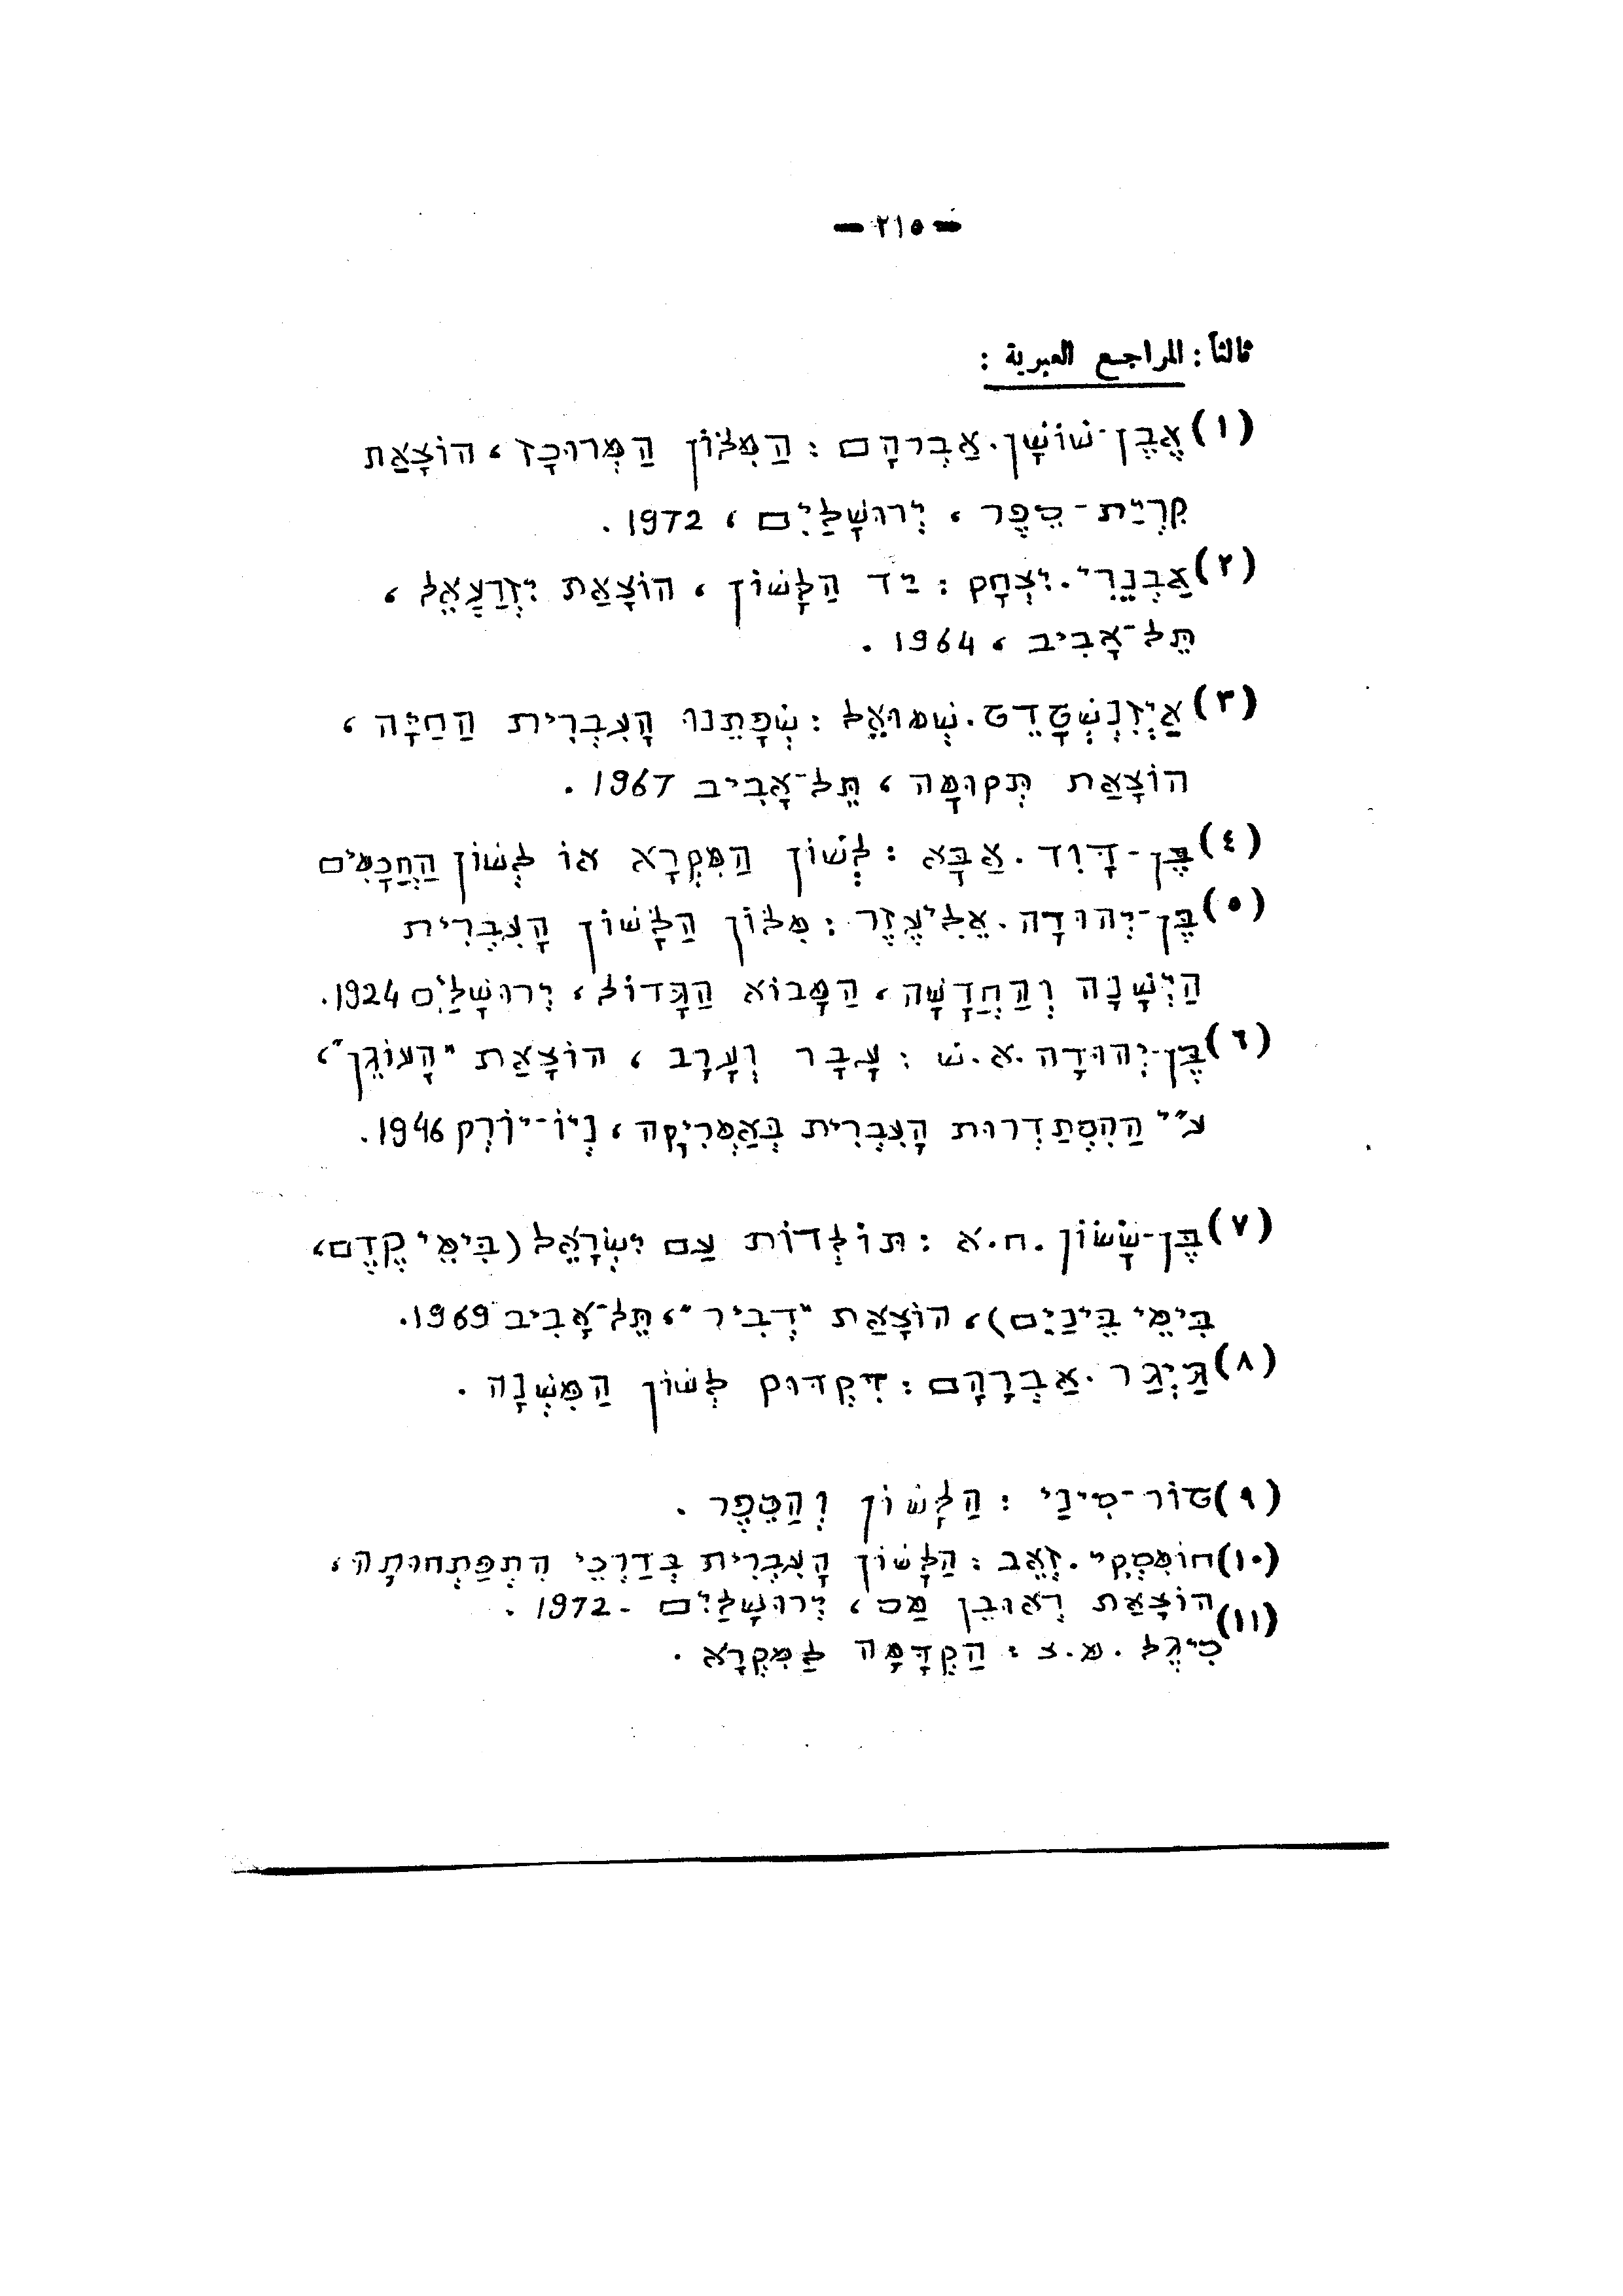 — ٢١٥ —
ثالثاً : المراجع العبرية :
(١) אֶבֶן-שׁוֹשָׁן. אַבְרהָם : הַמִלּוֹן הַמְרוּכָז ، הוֹצָאַת
קִרְיַת-סֵפֶר ، יְרוּשָׁלַיִם ، 1972 .
(٢) אַבְנֵרִי. יִצְחָק : יַד הַלָּשׁוֹן ، הוֹצָאַת יִזְרַעֵאל ،
תֵּל-אָבִיב ، 1964 .
(٣) אַיְזִנְשְׁטָדֵט. שְׁמוּאֵל : שְׂפָתֵנוּ הָעִבְרִית הַחַיָּה ،
הוֹצָאַת תְּקוּמָה ، תֵּל-אָבִיב 1967 .
(٤) בֶּן-דָּוִד . אַבָּא : לְשׁוֹן הַמִּקְרָא אוֹ לְשׁוֹן הַחֲכָמִים
(٥) בֶּן-יְהוּדָה. אֵלִיעֶזֶר : מִלּוֹן הַלָּשׁוֹן הָעִבְרִית
הַיְשָׁנָה וְהַחֲדָשָׁה ، הַמָּבוֹא הַגָּדוֹל ، יְרוּשָׁלַיִם 1924.
(٦) בֶּן-יְהוּדָה .א.ש : עָבָר וְעָרָב ، הוֹצָאַת "הָעוֹגֵן"،
ע"י הַהִסְתַדְרוּת הָעִבְרִית בְּאַמְרִיקָה ، נְיוּ-יוֹרְק 1946.
(٧) בֶּן-שָׂשׂוֹן .ח.א : תּוֹלְדוֹת עַם יִשְׂרָאֵל (בִּימֵי קֶדֶם،
בִּימֵי בֵּינַיִם)، הוֹצָאַת "דְבִיר"، תֵּל-אָבִיב 1969.
(٨) גַּיְגַר .אַבְרָהָם : דִּקְדּוּק לְשׁוֹן הַמִּשְׁנָה .
(٩) טוֹר-סִינַי : הַלָשׁוֹן וְהַסֵּפֶר .
(١٠) חוֹמְסְקִי. זְאֵב : הַלָּשׁוֹן הָעִבְרִית בְּדַרְכֵי הִתְפַּתְחוּתָהּ ،
הוֹצָאַת רְאוּבֵן מַס ، יְרוּשָׁלַיִם - 1972 .
(١١) סִיגֶל .מ.צ : הַקְדָּמָה לַמִקְרָא .